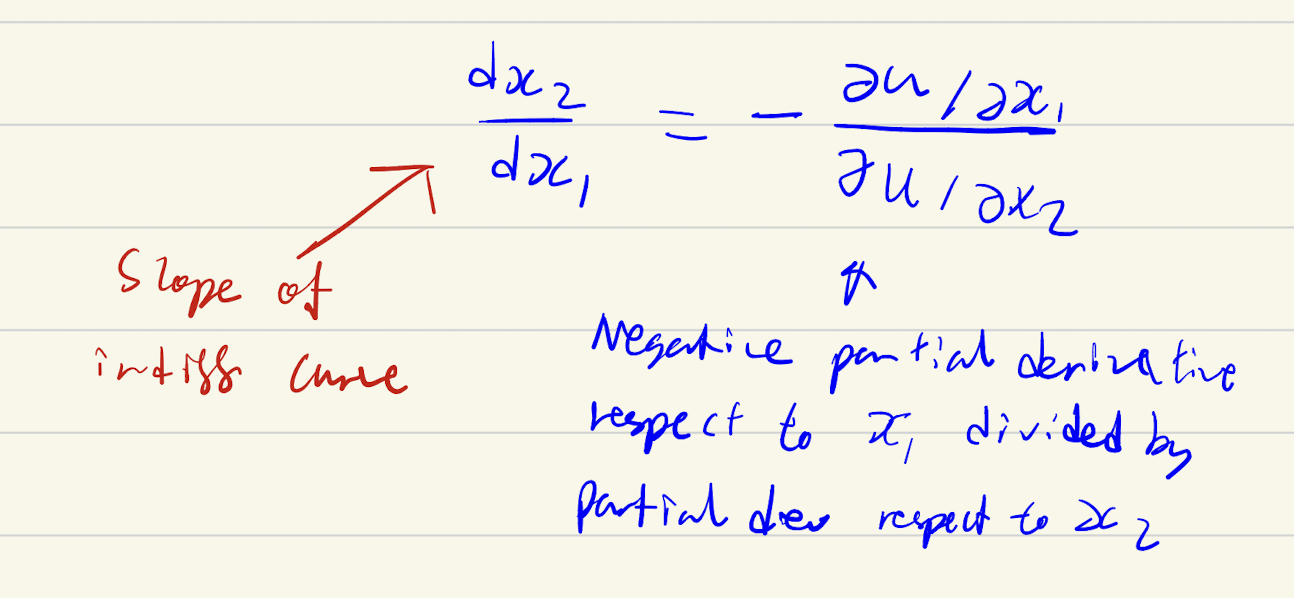 dx₂/dx₁ = - ∂u/∂x₁ / ∂u/∂x₂
Slope of
indiff curve
Negative partial derivative
respect to x₁ divided by
partial dev respect to x₂